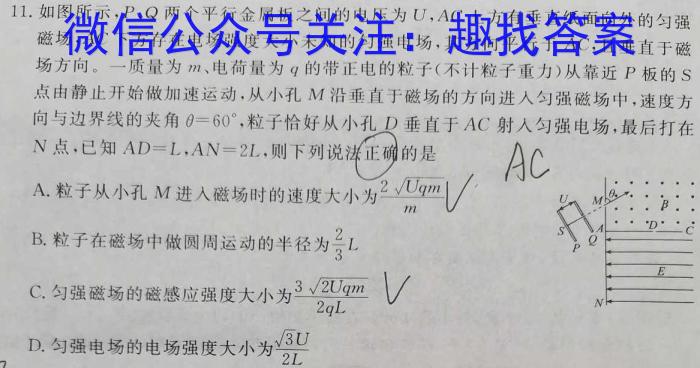 11. 如图所示, P、Q 两个平行金属板之间的电压为 U, AC 上方有垂直纸面向外的匀强
微信公众号关注：趣找答案
磁场 的匀强电场, 垂直于磁
场方向。一质量为 m、电荷量为 q 的带正电的粒子(不计粒子重力)从靠近 P 板的 S
点由静止开始做加速运动,从小孔 M 沿垂直于磁场的方向进入匀强磁场中,速度方
向与边界线的夹角 θ=60°,粒子恰好从小孔 D 垂直于 AC 射入匀强电场,最后打在
N 点,已知 AD=L,AN=2L,则下列说法正确的是
AC
A. 粒子从小孔 M 进入磁场时的速度大小为 2√Uqm/m √
B. 粒子在磁场中做圆周运动的半径为 2/3 L
C. 匀强磁场的磁感应强度大小为 3√2Uqm/2qL √
D. 匀强电场的电场强度大小为 √3U/2L
U M θ B
S A D C
P Q
E
N